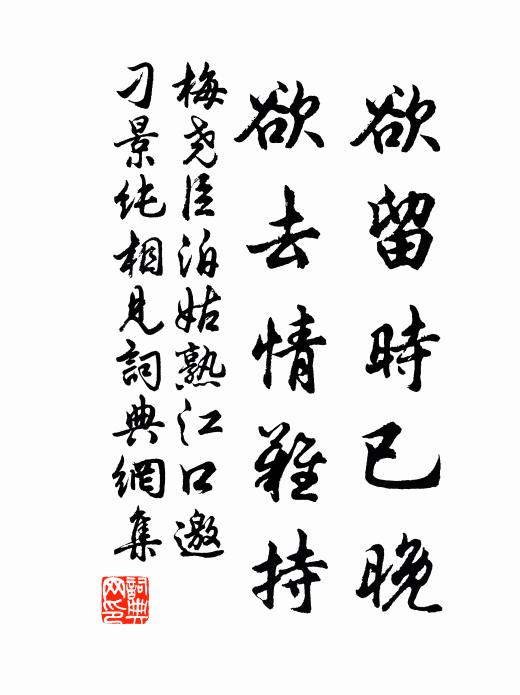 欲留時已晚
欲去情難持
梅尧臣泊姑熟江口邀
刁景纯相見詞典網集
詞典
网印